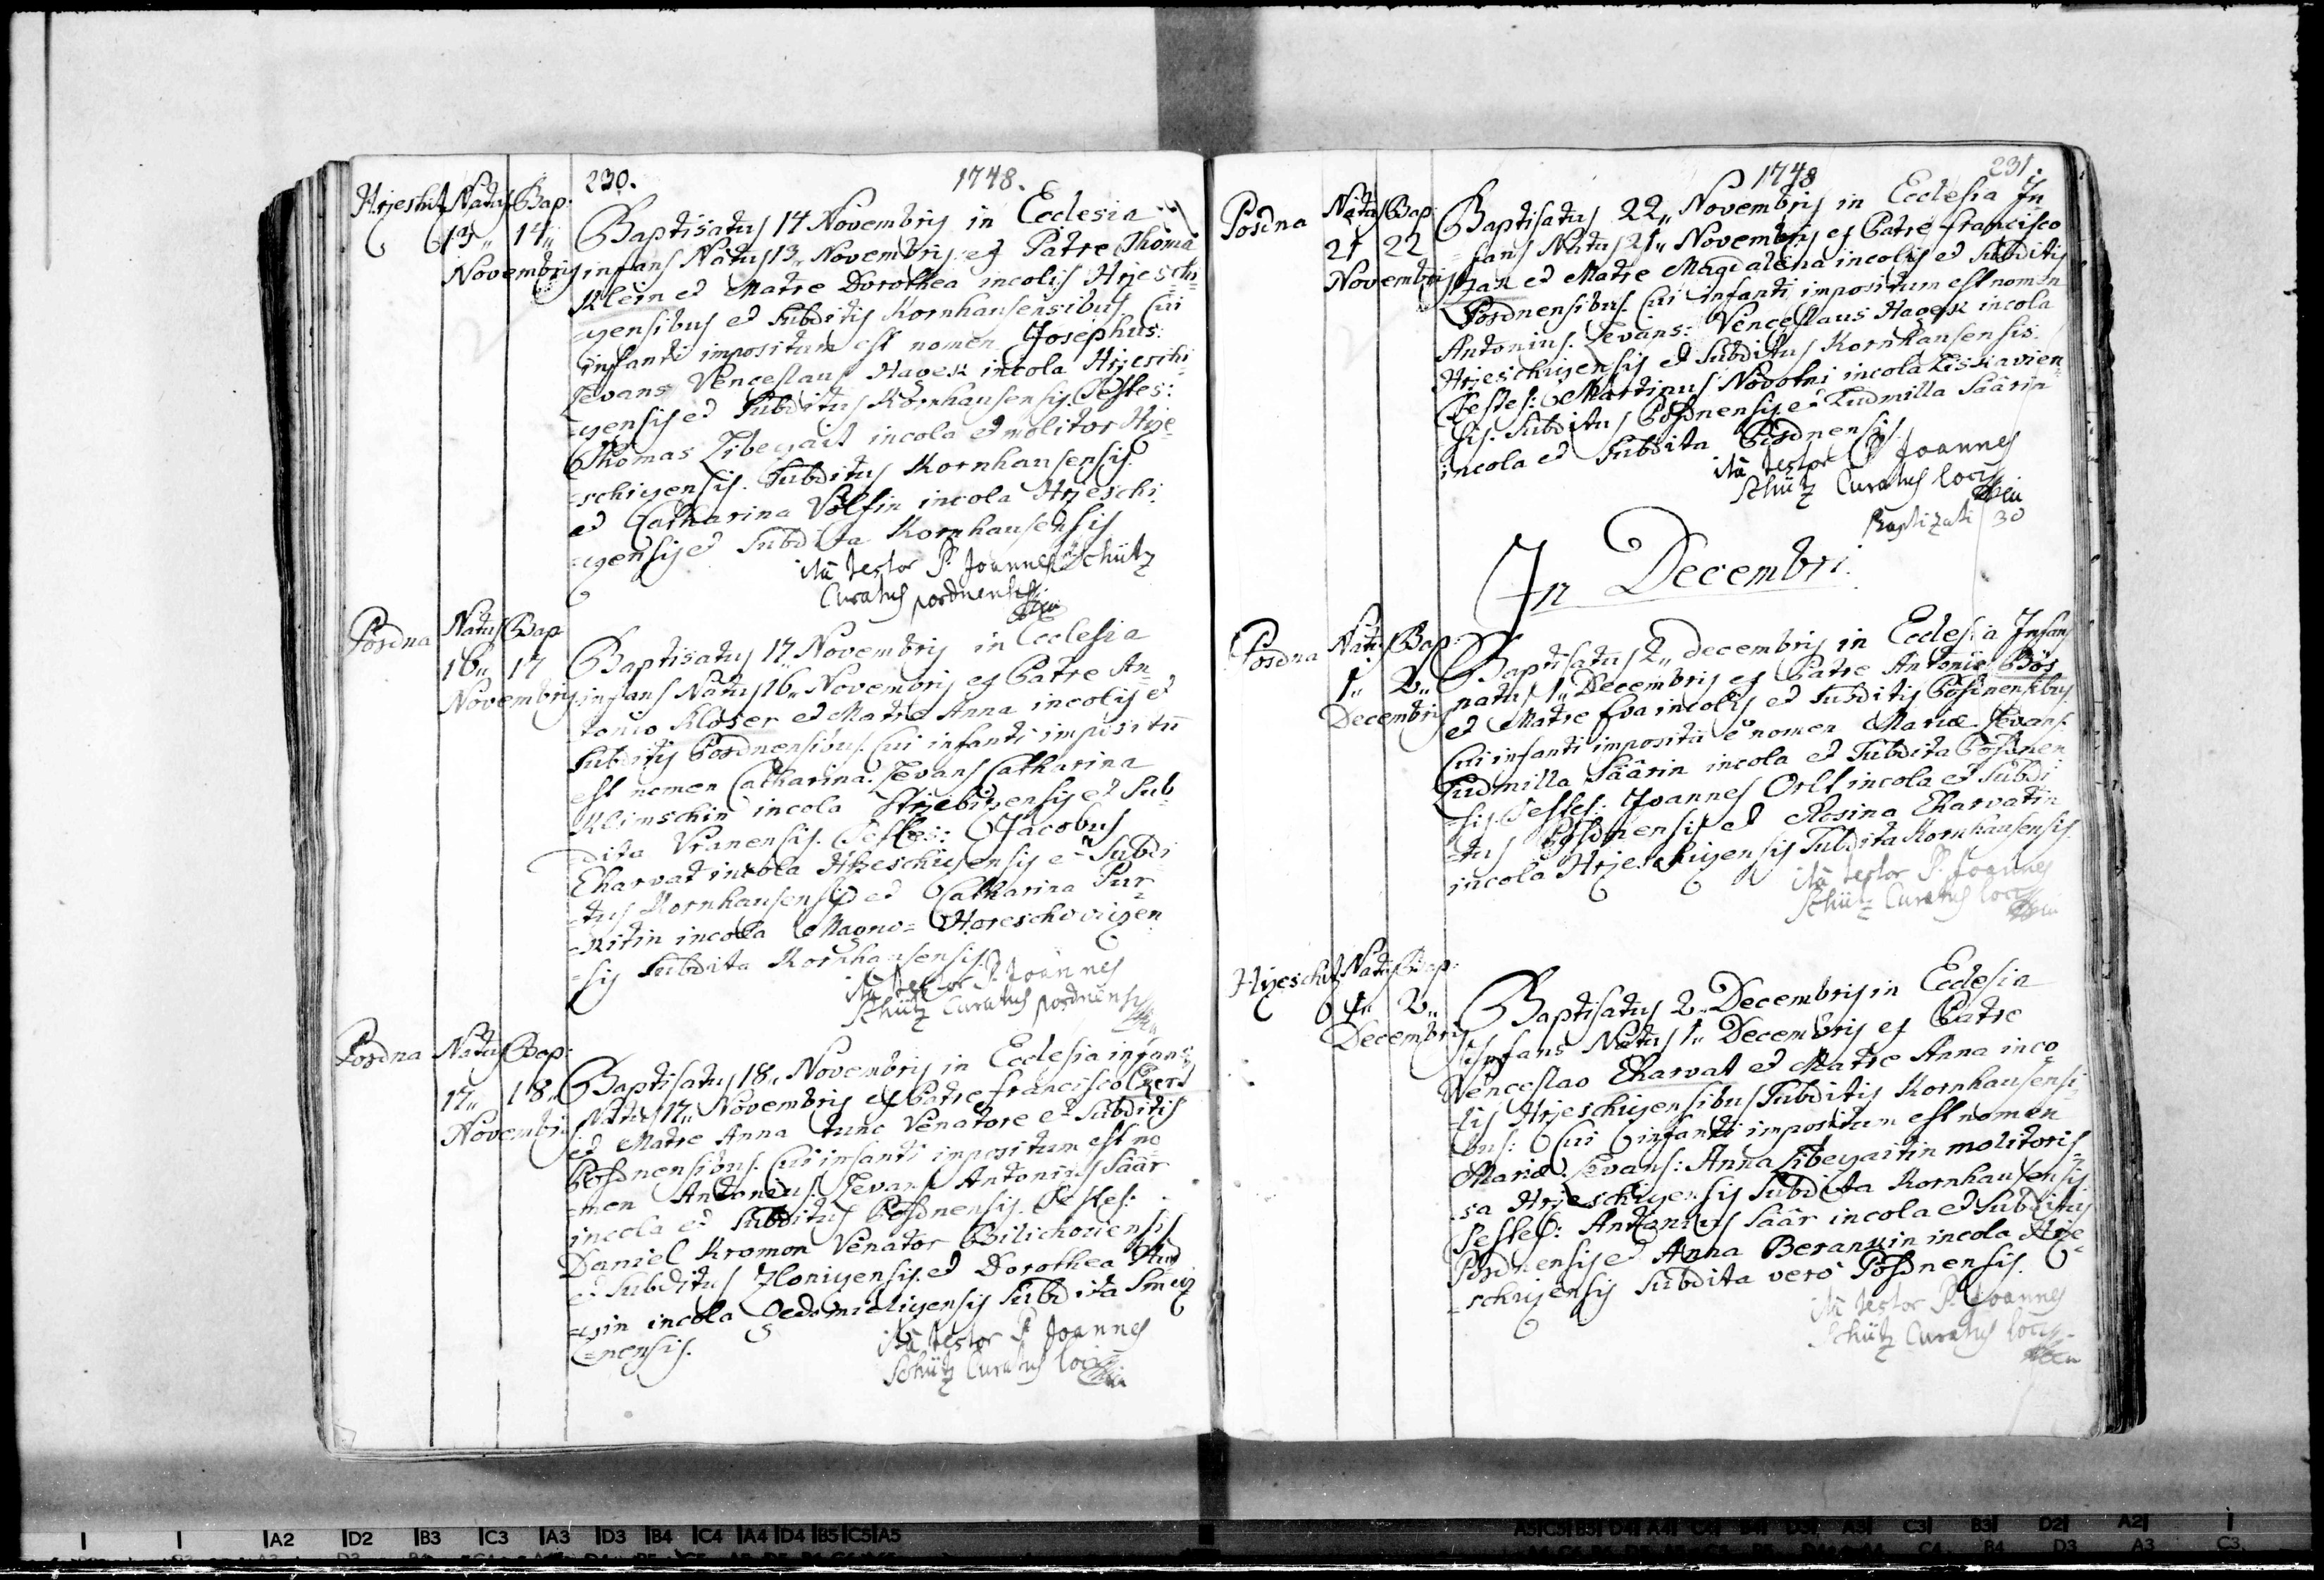 230. 1748.
Hrjeshit Natus Bap:
13„ 14„
Novembris
Baptisatus 14 Novembris in Ecclesia
infans Natus 13„ Novembris ex Patre Thoma
Klein et Matre Dorothea incolis Hrjeschi-
-gensibus et Subditis Kornhausensibus Cui
infanti impositum est nomen Josephus:
Levans Venceslaus Hagek incola Hrjeschi-
-gensis et Subditus Kornhausensis. Testes:
Thomas Libegait incola et molitor Hrje-
-schigensis. Subditus Kornhausensis.
et Catharina Volfin incola Hrjeschi
-gensis et Subdita Kornhausensis
ita testor P. Joannes Schütz
Curatus posdnensis
Posdna Natus Bap
16„ 17
Novembris
Baptisatus 17„ Novembris in Ecclesia
infans Natus 16„ Novembris ex Patre An-
tonio Kloser et Matre Anna incolis et
Subditis Posdnensibus. Cui infanti impositū
est nomen Catharina. Levans Catharina
Klimschin incola et Sub-
-dita Vranensis. Testes: Jacobus
Charvat incola Hrjeschigensis et Subdi
-tus Kornhausensis et Catharina Pur-
-kitin incola Magno= Horeschovigen
-sis Subdita Kornhausensis.
ita testor P. Joannes
Schütz Curatus posdnensis
Posdna Natus Bap:
17„ 18„
Novembris
Baptisatus 18„ Novembris in Ecclesia infans
Natus 17„ Novembris ex Patre francisco
et Matre Anna tunc Venatore et Subditis
Posdnensibus. Cui infanti impositum est no
-men Antonius. Levans Antonius Säär
incola et Subditus Posdnensis. Testes:
Daniel Kromon Venator Bilichoviensis
et Subditus Zlonigensis. et Dorothea
-gin incola Gedomieligensis Subdita Smecz
-nensis.
ita testor P. Joannes
Schütz Curatus loci
1748 231.
Posdna Natus Bap:
21 22
Novembris
Baptisatus 22„ Novembris in Ecclesia In
-fans Natus 21„ Novembris ex Patre francisco
et Matre Magdalena incolis et Subditis
Posdnensibus. Cui infanti impositum est nomen
Antonius. Levans: Venceslaus Hagek incola
Hrjeschigensis et Subditus Kornhausensis.
Testes: Martinus Novotni incola Lisskavien-
-sis. Subditus Posdnensis. et Ludmilla Säärin
incola et Subdita Posdnensis.
ita testor P. Joannes
Schütz Curatus loci
Baptizati 30
In Decembri.
Posdna Natus Bap:
1„ 2„
Decembris
Baptisatus 2„ decembris in Ecclesia Infans
natus 1„ Decembris ex Patre Antonio Bös
et Matre Eva incolis et Subditis Posdnensibus.
Cui infanti impositū ē nomen Mariæ. Levans:
Ludmilla Säärin incola et Subdita Posdnen
-sis. Testes: Joannes Orlt incola et Subdi
-tus Posdnensis et Rosina Charvatin
incola Hrjeschigensis Subdita Kornhausensis.
ita testor P. Joannes
Schütz Curatus loci
Hrjeschit Natus Bap:
1„ 2„
Decembris
Baptisatus 2„ Decembris in Ecclesia
Infans Natus 1„ Decembris ex Patre
Venceslao Charvat et Matre Anna inco-
-lis Hrjeschigensibus Subditis Kornhausensi-
-bus: Cui infanti impositum est nomen
Mariæ. Levans: Anna Libegaitin molitoris-
-sa Hrjeschigensis Subdita Kornhausensis.
Testes: Antonius Säär incola et Subditus
Posdnensis et Anna Berankin incola Hrje-
-schigensis Subdita vero Posdnensis.
ita testor P. Joannes
Schütz Curatus loci